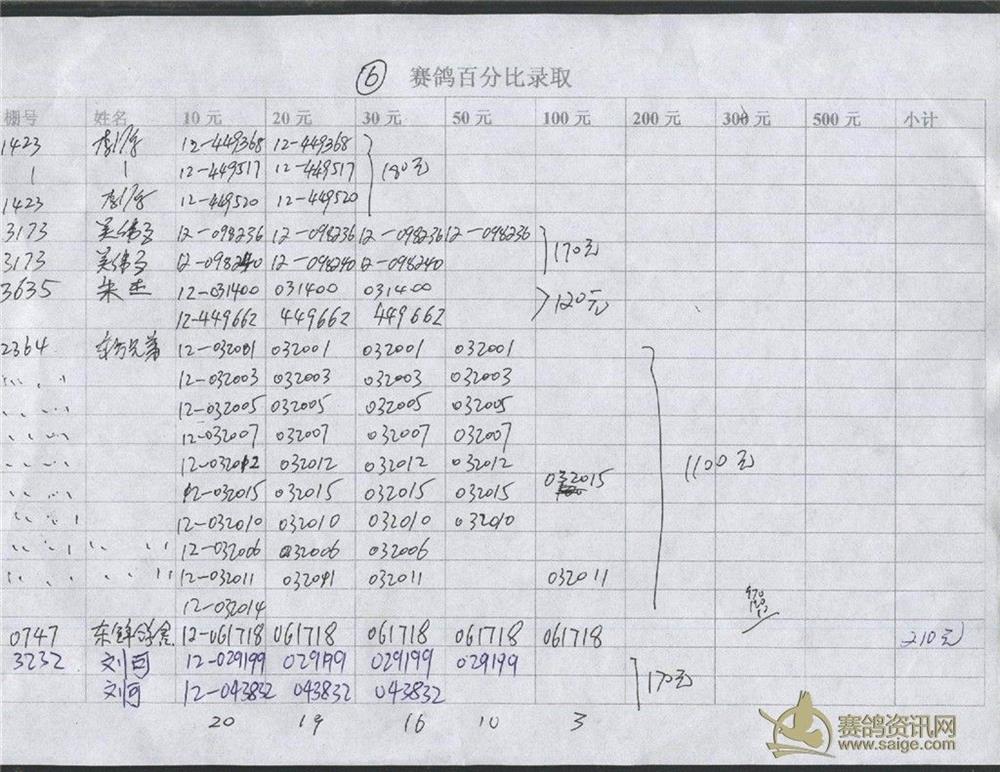 ⑥ 赛鸽百分比录取
棚号 姓名 10元 20元 30元 50元 100元 200元 300元 500元 小计
1423 12-449368 12-449368
12-449517 12-449517 180元
1423 12-449520 12-449520
3173 12-098236 12-098236 12-098236 12-098236
3173 12-098240 12-098240 12-098240 170元
3635 朱杰 12-031400 031400 031400
12-449662 449662 449662 120元
2364 东方兄弟 12-032001 032001 032001 032001
12-032003 032003 032003 032003
12-032005 032005 032005 032005
12-032007 032007 032007 032007
12-032012 032012 032012 032012 1100元
12-032015 032015 032015 032015 032015
12-032010 032010 032010 032010
12-032006 032006 032006
12-032011 032011 032011 032011
12-032014
0747 12-061718 061718 061718 061718 061718 210元
3232 刘可 12-029199 029199 029199 029199
刘可 12-043832 043832 043832 170元
20 19 16 10 3
赛鸽资讯网
www.saige.com